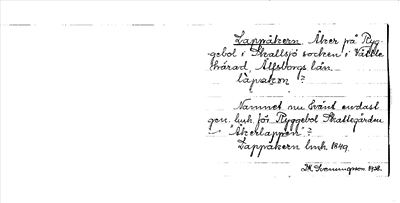 Lappåkern Åker på Ryg-
gebol i Skallsjö socken i Vättle
härad, Älfsborgs län.
låpakon ?
Namnet nu känt endast
gen. link. för Ryggebol Skattegården
"Åkerlappen"?
Lappåkern link 1849.
Svenungsson 1928.